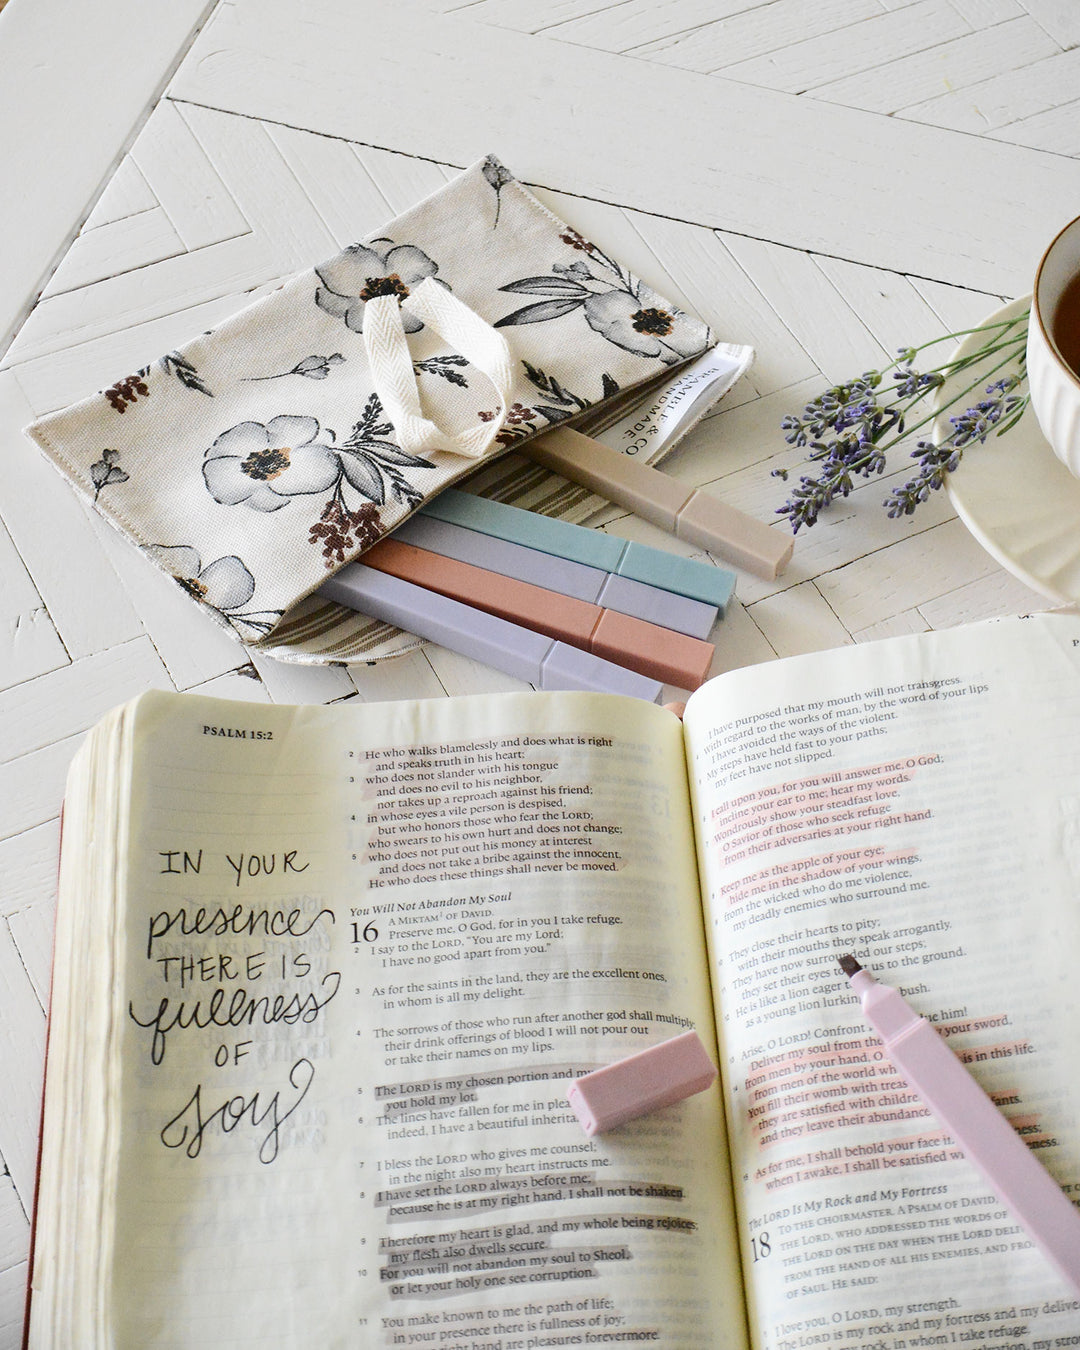 BRAMBLE & CO.
HANDMADE
PSALM 15:2
IN YOUR
presence
THERE IS
fullness
OF
Joy
2 He who walks blamelessly and does what is right
and speaks truth in his heart;
3 who does not slander with his tongue
and does no evil to his neighbor,
nor takes up a reproach against his friend;
4 in whose eyes a vile person is despised,
but who honors those who fear the LORD;
who swears to his own hurt and does not change;
5 who does not put out his money at interest
and does not take a bribe against the innocent.
He who does these things shall never be moved.
You Will Not Abandon My Soul
16 A MIKTAM1 OF DAVID.
Preserve me, O God, for in you I take refuge.
2 I say to the LORD, "You are my Lord;
I have no good apart from you."
3 As for the saints in the land, they are the excellent ones,
in whom is all my delight.
4 The sorrows of those who run after another god shall multiply;
their drink offerings of blood I will not pour out
or take their names on my lips.
5 The LORD is my chosen portion and my
you hold my lot.
6 The lines have fallen for me in
indeed, I have a beautiful
7 I bless the LORD who gives me counsel;
in the night also my heart instructs me.
8 I have set the LORD always before me;
because he is at my right hand, I shall not be shaken.
9 Therefore my heart is glad, and my whole being rejoices;
my flesh also dwells secure.
10 For you will not abandon my soul to Sheol,
or let your holy one see corruption.
11 You make known to me the path of life;
in your presence there is fullness of joy;
right hand are pleasures forevermore.
I have purposed that my mouth will not transgress.
4 With regard to the works of man, by the word of your lips
I have avoided the ways of the violent.
5 My steps have held fast to your paths;
my feet have not slipped.
6 I call upon you, for you will answer me, O God;
incline your ear to me; hear my words.
7 Wondrously show your steadfast love,
O Savior of those who seek refuge
from their adversaries at your right hand.
8 Keep me as the apple of your eye;
hide me in the shadow of your wings,
9 from the wicked who do me violence,
my deadly enemies who surround me.
10 They close their hearts to pity;
with their mouths they speak arrogantly.
11 They have now surrounded our steps;
they set their eyes to us to the ground.
12 He is like a lion eager
as a young lion
13 Arise, O LORD! Confront him!
Deliver my soul from the your sword,
14 from men by your hand, O
from men of the world is in this life.
You fill their womb with
they are satisfied with
and they leave their abundance
15 As for me, I shall behold your face
when I awake, I shall be satisfied
The LORD Is My Rock and My Fortress
18 TO THE CHOIRMASTER. A PSALM OF DAVID,
THE LORD, WHO ADDRESSED THE WORDS OF
THE LORD ON THE DAY WHEN THE LORD
FROM THE HAND OF ALL HIS ENEMIES, AND
OF SAUL. HE SAID:
1 I love you, O LORD, my strength.
2 The LORD is my rock and my fortress and my
my rock, in whom I take refuge,